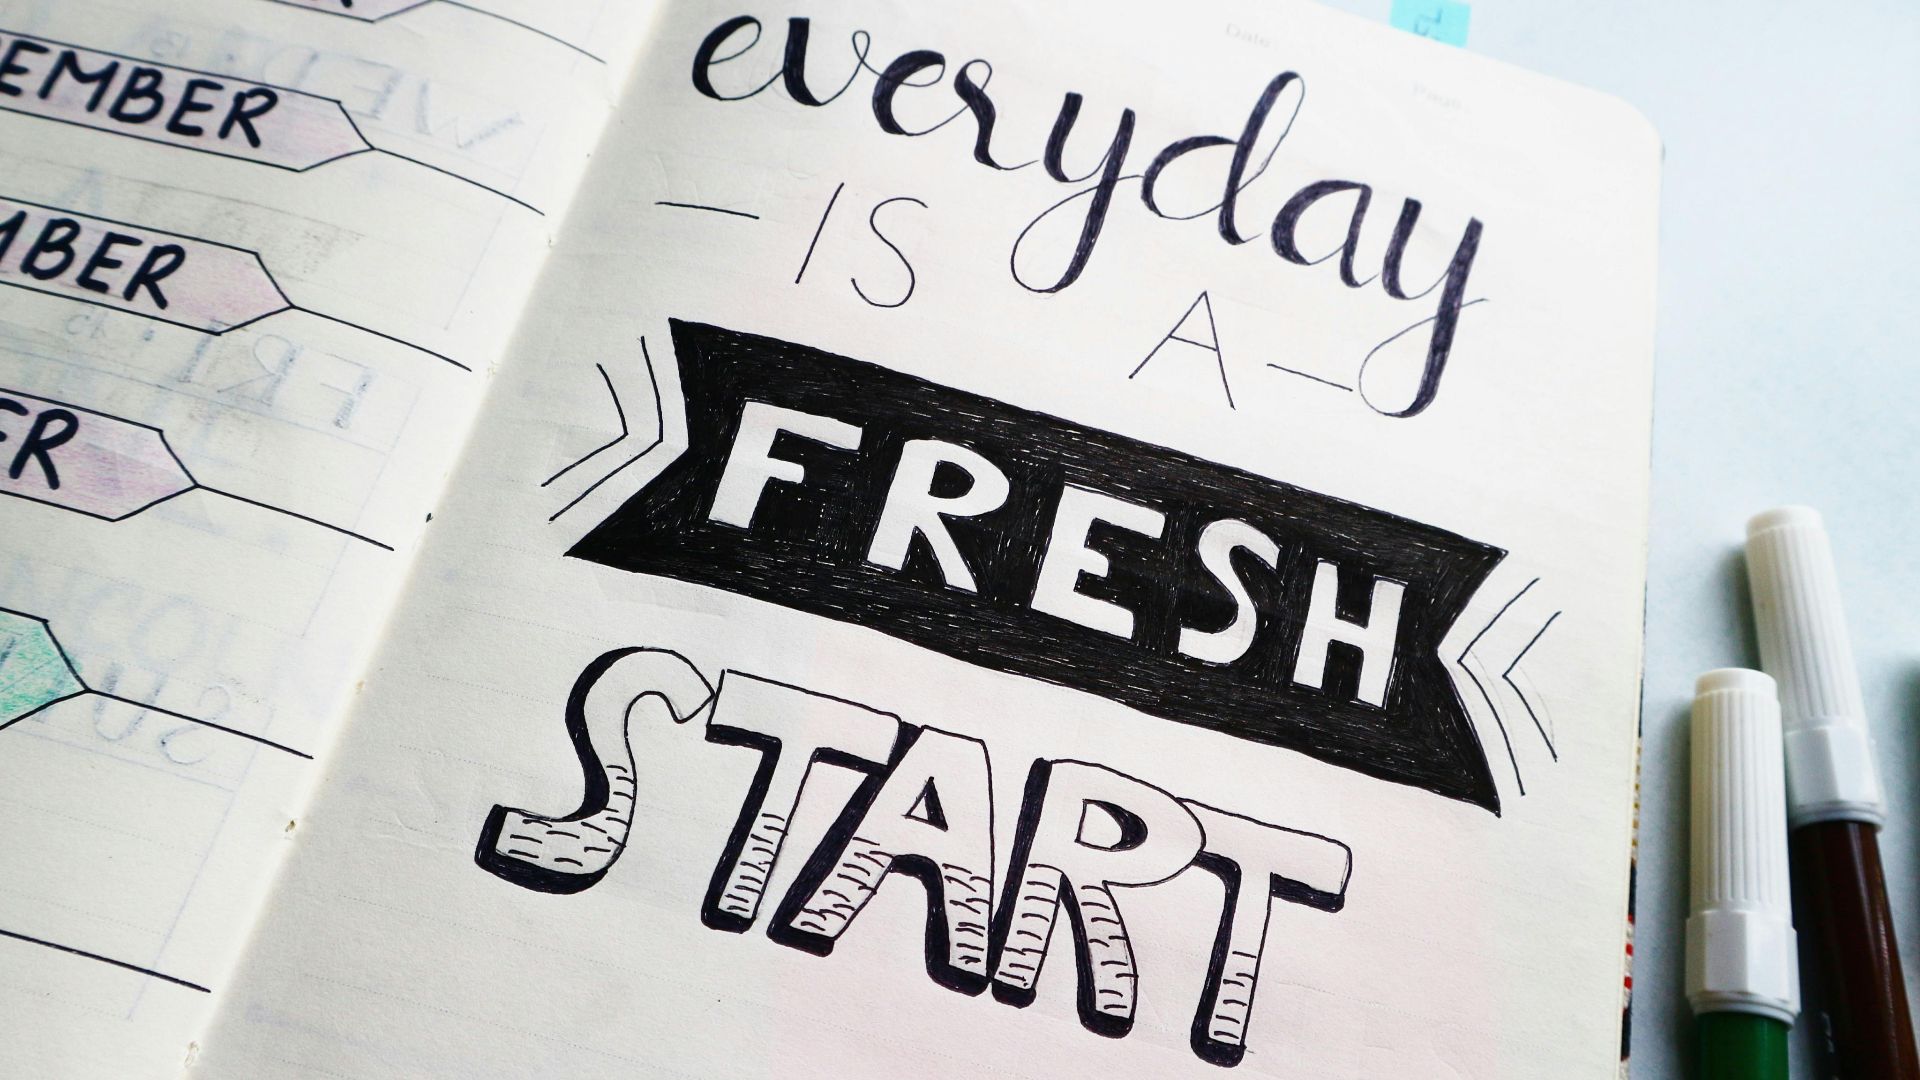 EMBER
MBER
ER
everyday
- IS A -
FRESH
START
Date:
Page: